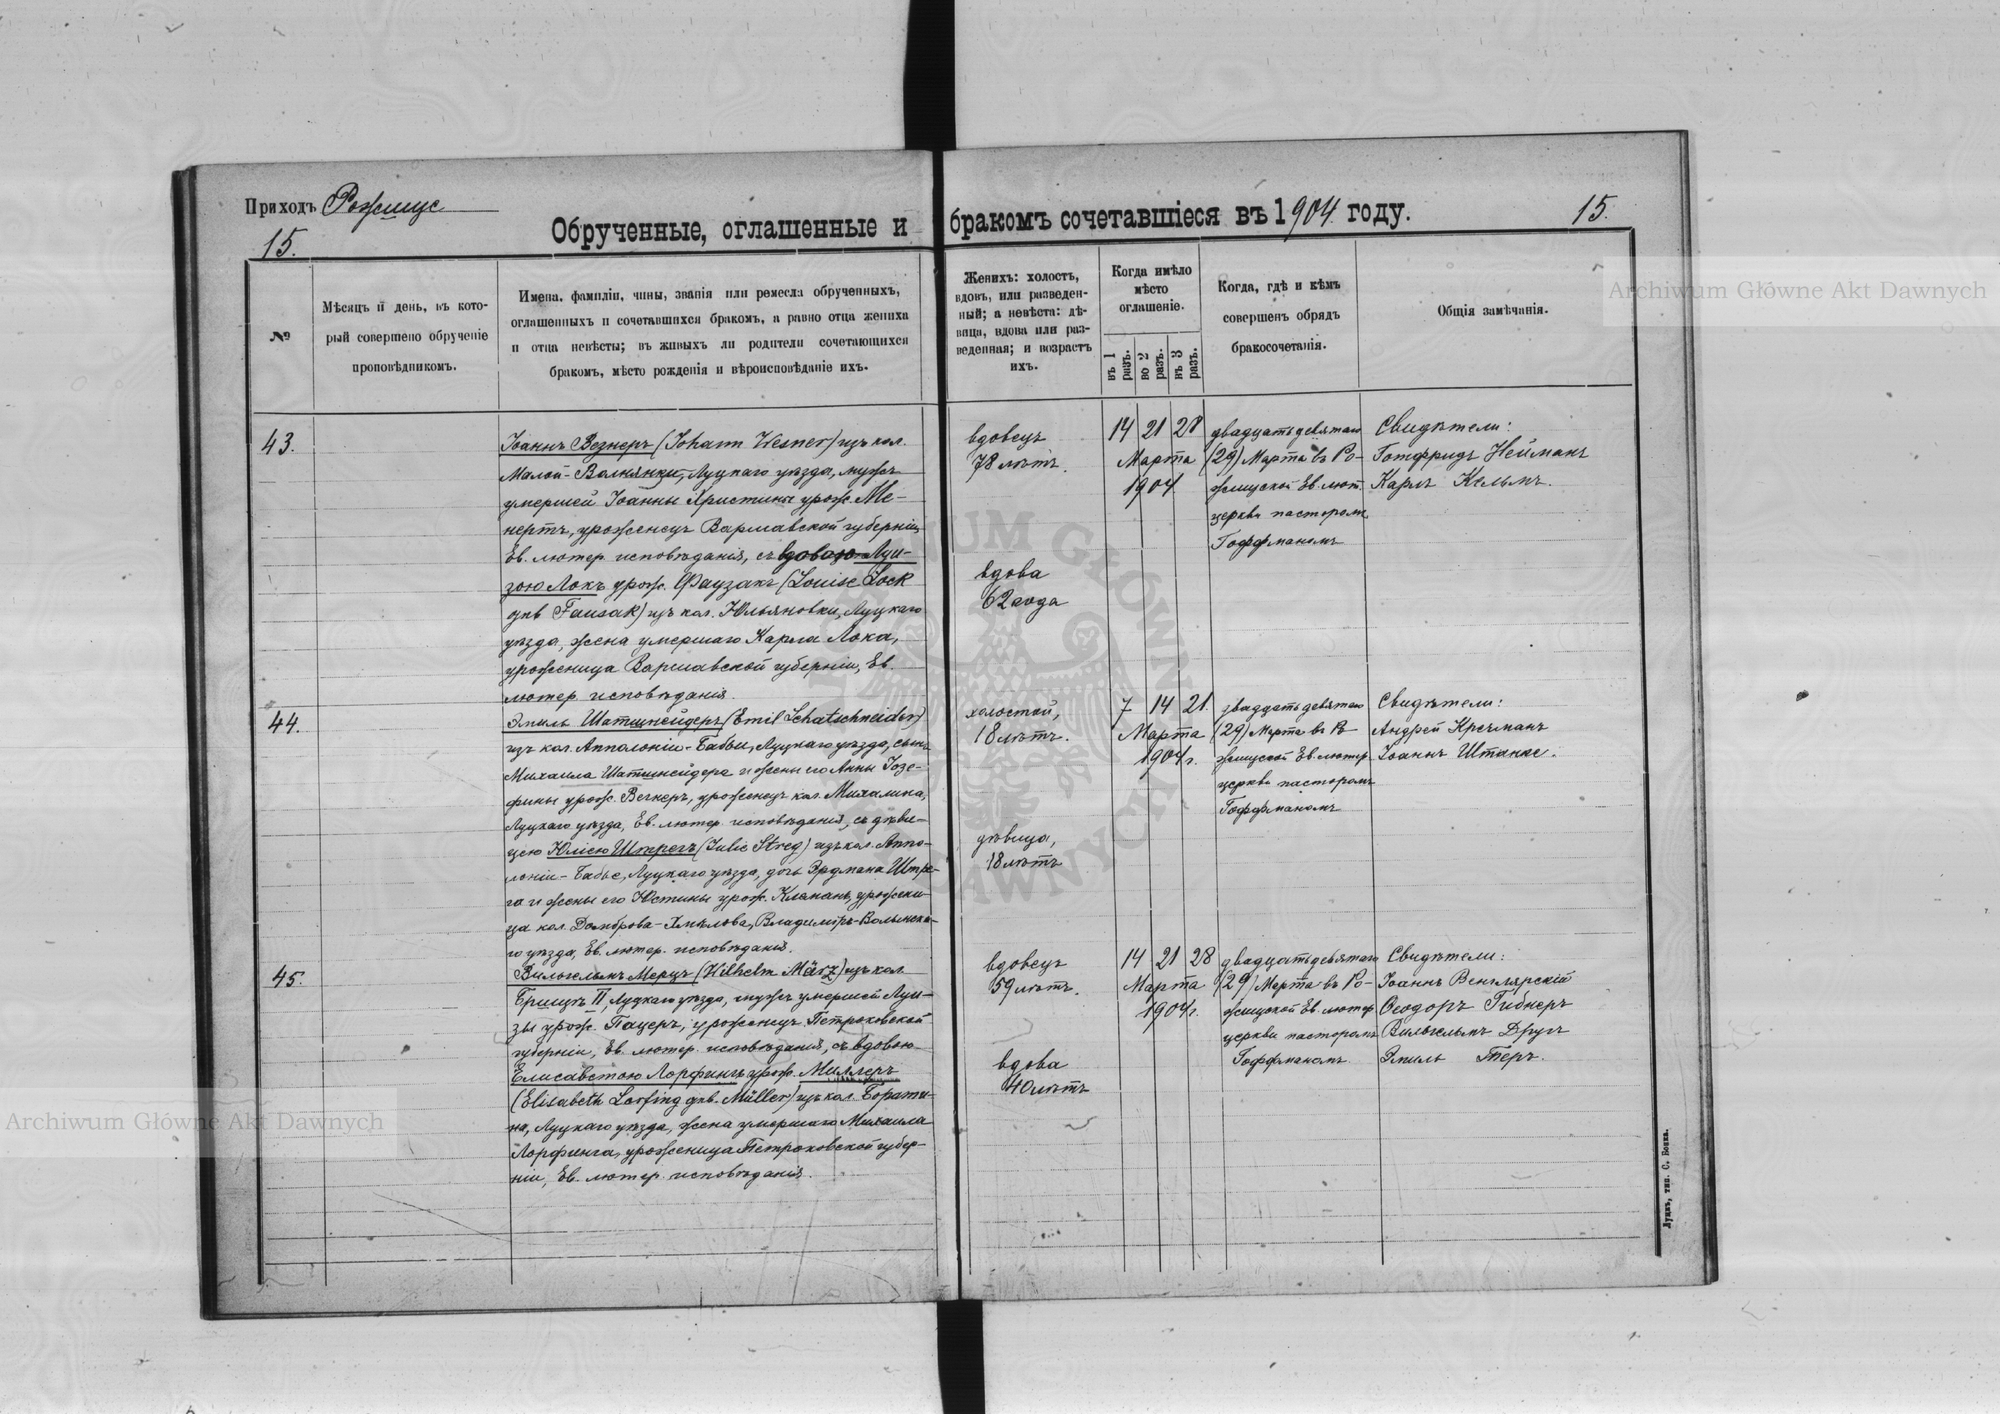 Приходъ Рожище
15.
Обрученные, оглашенные и бракомъ сочетавшіеся въ 1904 году.
15.
№
Мѣсяцъ и день, въ кото-
рый совершено обрученіе
проповѣдникомъ.
Имена, фамиліи, чины, званія или ремесла обрученныхъ,
оглашенныхъ и сочетавшихся бракомъ, а равно отца жениха
и отца невѣсты; въ живыхъ ли родители сочетающихся
бракомъ, мѣсто рожденія и вѣроисповѣданіе ихъ.
Женихъ: холостъ,
вдовъ, или разведен-
ный; а невѣста: дѣ-
вица, вдова или раз-
веденная; и возрастъ
ихъ.
Когда имѣло
мѣсто
оглашеніе.
въ 1 разъ.
во 2 разъ.
въ 3 разъ.
Когда, гдѣ и кѣмъ
совершенъ обрядъ
бракосочетанія.
Общія замѣчанія.
43.
Іоаннъ Везнеръ (Johann Wesner) изъ кол.
Малой-Волнянки, Луцкаго уѣзда, мужъ
умершей Іоанны Христины урож. Ме-
нертъ, уроженецъ Варшавской губерніи,
Ев. лютер. исповѣданія, съ вдовою Луи-
зою Локъ урож. Фаузакъ (Louise Lock
gnb Fausak) изъ кол. Юльяновки, Луцкаго
уѣзда, жена умершаго Карла Лока,
уроженица Варшавской губерніи, Ев.
лютер. исповѣданія.
вдовецъ
78 лѣтъ.
вдова
62 года
14 21 28
Марта
1904
двадцать девятаго
(29) Марта въ Ро-
жищской Ев. лют.
церкви пасторомъ
Гоффманомъ
Свидѣтели:
Готфридъ Нейманъ
Карлъ Кельмъ.
44.
Эмиль Шатшнейдеръ (Emil Schatschneider)
изъ кол. Апполоніи-Бабьи, Луцкаго уѣзда, сынъ
Михаила Шатшнейдера и жены его Анны Іозе-
фины урож. Вегнеръ, уроженецъ кол. Михалина,
Луцкаго уѣзда, Ев. лютер. исповѣданія, съ дѣви-
цею Юліею Штрегъ (Julie Streg) изъ кол. Аппо-
лоніи-Бабье, Луцкаго уѣзда, дочь Эрдмана Штре-
га и жены его Юстины урож. Клеманъ, урожени-
ца кол. Домброва-Хмѣлова, Владиміръ-Волынска-
го уѣзда, Ев. лютер. исповѣданія.
холостой,
18 лѣтъ.
дѣвица,
18 лѣтъ
7 14 21.
Марта
1904 г.
двадцать девятаго
(29) Марта въ Ро-
жищской Ев. лютер.
церкви пасторомъ
Гоффманомъ
Свидѣтели:
Андрей Кречманъ
Іоаннъ Штанке.
45.
Вильгельмъ Мерцъ (Wilhelm März) изъ кол.
Брищъ II, Луцкаго уѣзда, мужъ умершей Луи-
зы урож. Пацеръ, уроженецъ Петроковской
губерніи, Ев. лютер. исповѣданія, съ вдовою
Елисаветою Лорфингъ урож. Миллеръ
(Elisabeth Lorfing gnb. Müller) изъ кол. Борати-
на, Луцкаго уѣзда, жена умершаго Михаила
Лорфинга, уроженица Петроковской губер-
ніи, Ев. лютер. исповѣданія.
вдовецъ
59 лѣтъ.
вдова
40 лѣтъ
14 21 28
Марта
1904 г.
двадцать девятаго
(29) Марта въ Ро-
жищской Ев. лютер
церкви пасторомъ
Гоффманомъ.
Свидѣтели:
Іоаннъ Венглярскій
Ѳеодоръ Гибнеръ
Вильгельмъ Другъ
Эмиль
Луцкъ, тип. С. Бокка.
Archiwum Główne Akt Dawnych
Archiwum Główne Akt Dawnych